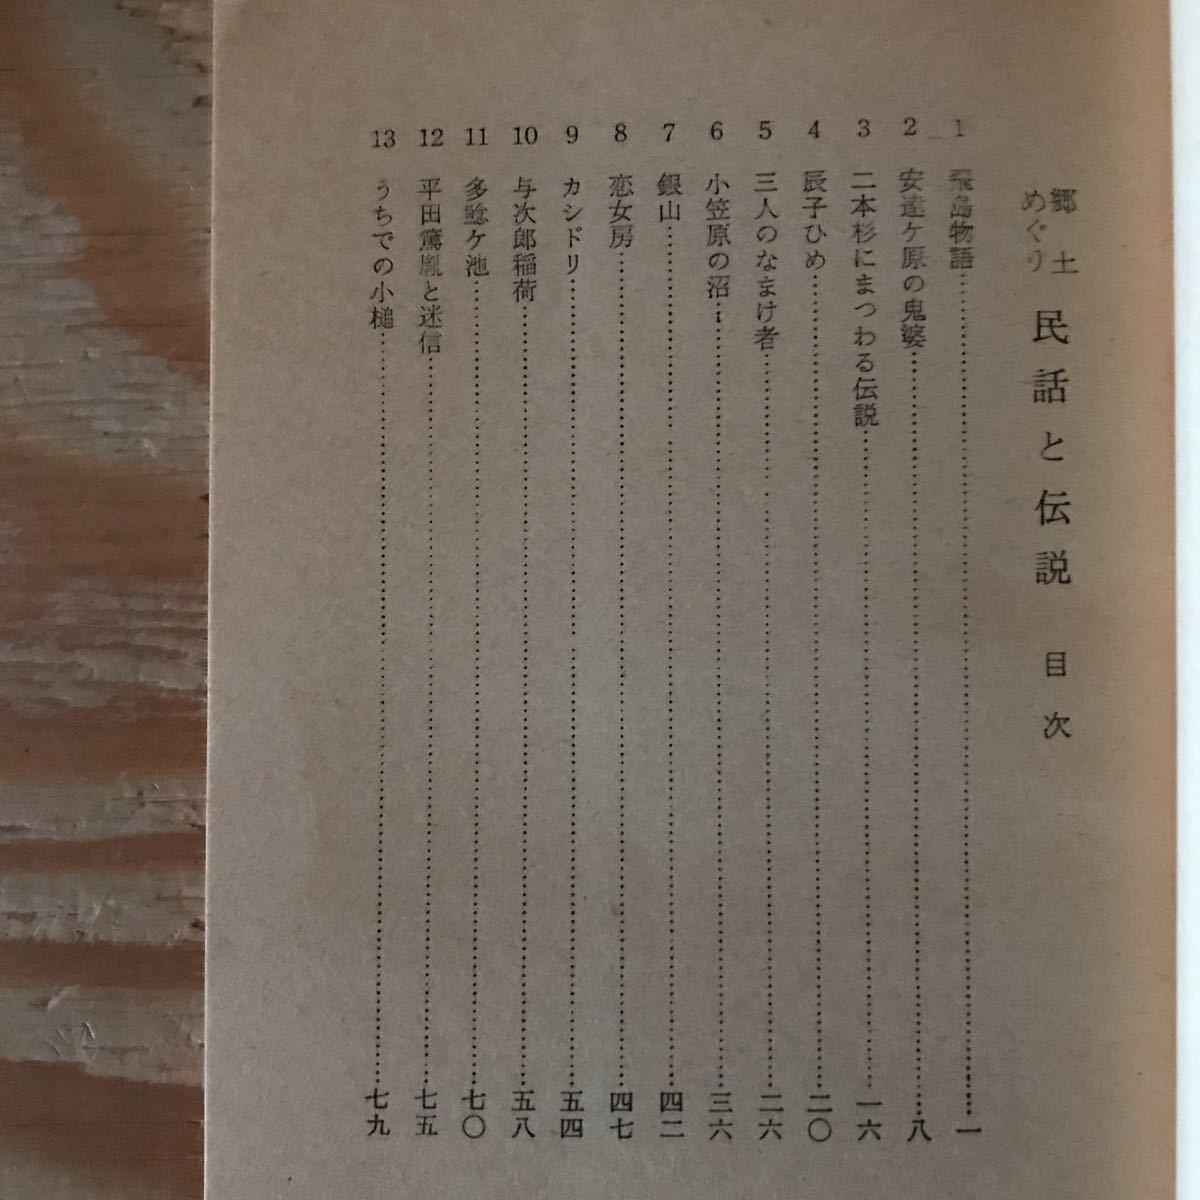 郷土めぐり 民話と伝説 目次
1 飛島物語……一
2 安達ケ原の鬼婆……八
3 二本杉にまつわる伝説……一六
4 辰子ひめ……二〇
5 三人のなまけ者……二六
6 小笠原の沼……三六
7 銀山……四二
8 恋女房……四七
9 カシドリ……五四
10 与次郎稲荷……五八
11 多鯰ケ池……七〇
12 平田篤胤と迷信……七五
13 うちでの小槌……七九